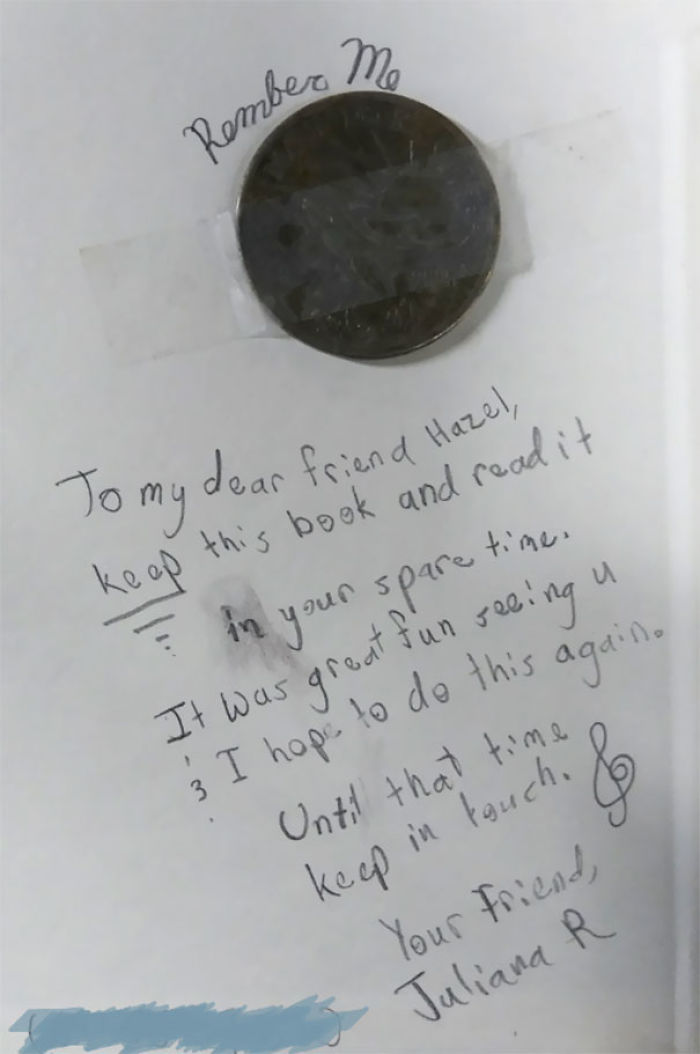 Rember Me
To my dear friend Hazel,
keep this book and read it
in your spare time.
It was great fun seeing u
& I hope to do this again.
Until that time
keep in touch.
Your Friend,
Juliana R